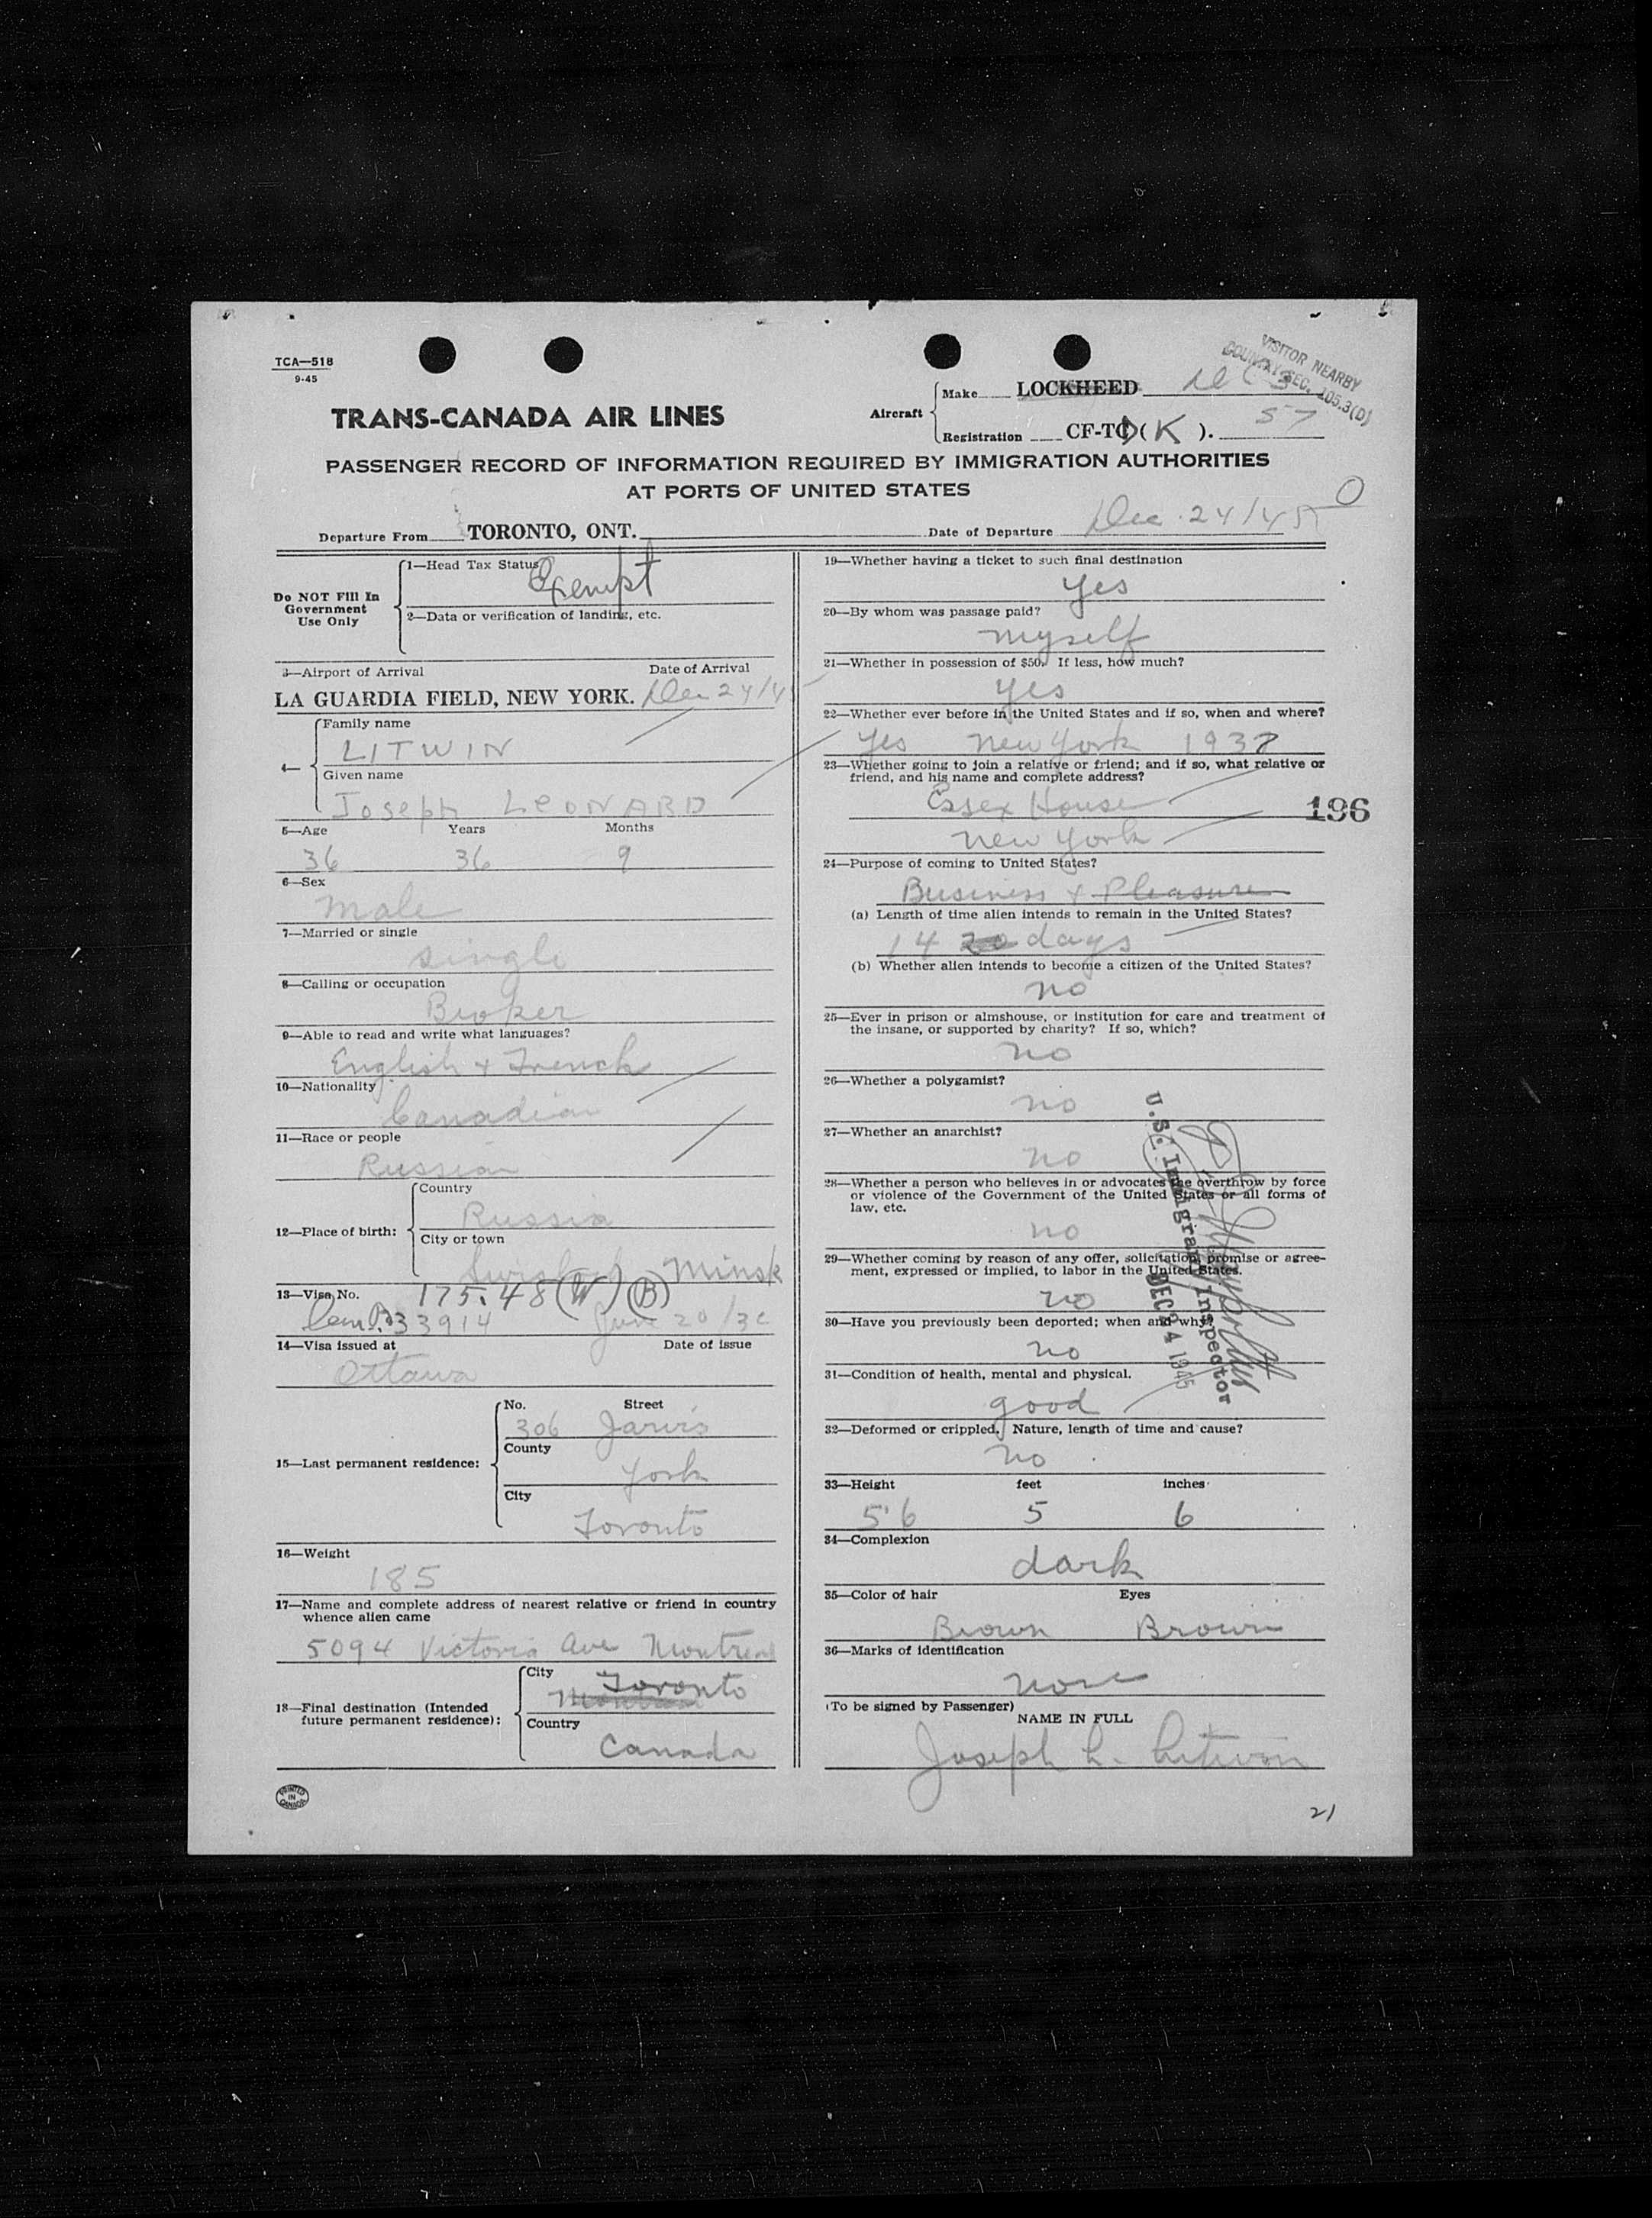 TCA—518
9-45
VISITOR NEARBY
COUNTRY SEC. 105.3(D)
TRANS-CANADA AIR LINES
Aircraft
Make LOCKHEED DC3
Registration CF-TCD (K ). 57
PASSENGER RECORD OF INFORMATION REQUIRED BY IMMIGRATION AUTHORITIES
AT PORTS OF UNITED STATES
O
Departure From TORONTO, ONT. Date of Departure Dec. 24/45
Do NOT Fill In
Government
Use Only
1—Head Tax Status
Exempt
2—Data or verification of landing, etc.
3—Airport of Arrival Date of Arrival
LA GUARDIA FIELD, NEW YORK. Dec 24/4
4—
Family name
LITWIN
Given name
Joseph LEONARD
5—Age Years Months
36 36 9
6—Sex
Male
7—Married or single
single
8—Calling or occupation
Broker
9—Able to read and write what languages?
English + French
10—Nationality
Canadian
11—Race or people
Russian
12—Place of birth:
Country
Russia
City or town
Minsk
13—Visa No. 175.48 (W) (B)
33914 June 20/32
14—Visa issued at Date of issue
Ottawa
15—Last permanent residence:
No. Street
306 Jarvis
County
York
City
Toronto
16—Weight
185
17—Name and complete address of nearest relative or friend in country
whence alien came
5094 Victoria Ave Montreal
18—Final destination (Intended
future permanent residence):
City
Toronto
Montreal
Country
Canada
PRINTED
IN
CANADA
19—Whether having a ticket to such final destination
yes
20—By whom was passage paid?
myself
21—Whether in possession of $50. If less, how much?
yes
22—Whether ever before in the United States and if so, when and where?
Yes New York 1937
23—Whether going to join a relative or friend; and if so, what relative or
friend, and his name and complete address?
Essex House
196
New York
24—Purpose of coming to United States?
Business + Pleasure
(a) Length of time alien intends to remain in the United States?
14 20 days
(b) Whether alien intends to become a citizen of the United States?
no
25—Ever in prison or almshouse, or institution for care and treatment of
the insane, or supported by charity? If so, which?
no
26—Whether a polygamist?
no
27—Whether an anarchist?
no
28—Whether a person who believes in or advocates the overthrow by force
or violence of the Government of the United States or all forms of
law, etc.
no
29—Whether coming by reason of any offer, solicitation, promise or agree-
ment, expressed or implied, to labor in the United States.
no
30—Have you previously been deported; when and why?
no
U.S. Immigrant Inspector
DEC 24 1945
31—Condition of health, mental and physical.
good
32—Deformed or crippled. Nature, length of time and cause?
no
33—Height feet inches
5'6 5 6
34—Complexion
dark
35—Color of hair Eyes
Brown Brown
36—Marks of identification
none
(To be signed by Passenger)
NAME IN FULL
Joseph L. Litwin
21